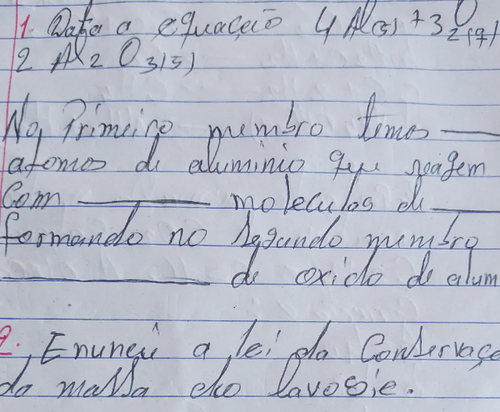 1. Data a equação 4 Al(s) + 3 O2(g)
2 Al2 O3(s)
No Primeiro membro temos ____
atomos de aluminio que reagem
Com ________ moleculas de ____
formando no Segundo membro
____________ de oxido de alum
2. Enuncie a lei da Conservaçe
da massa do lavosie.